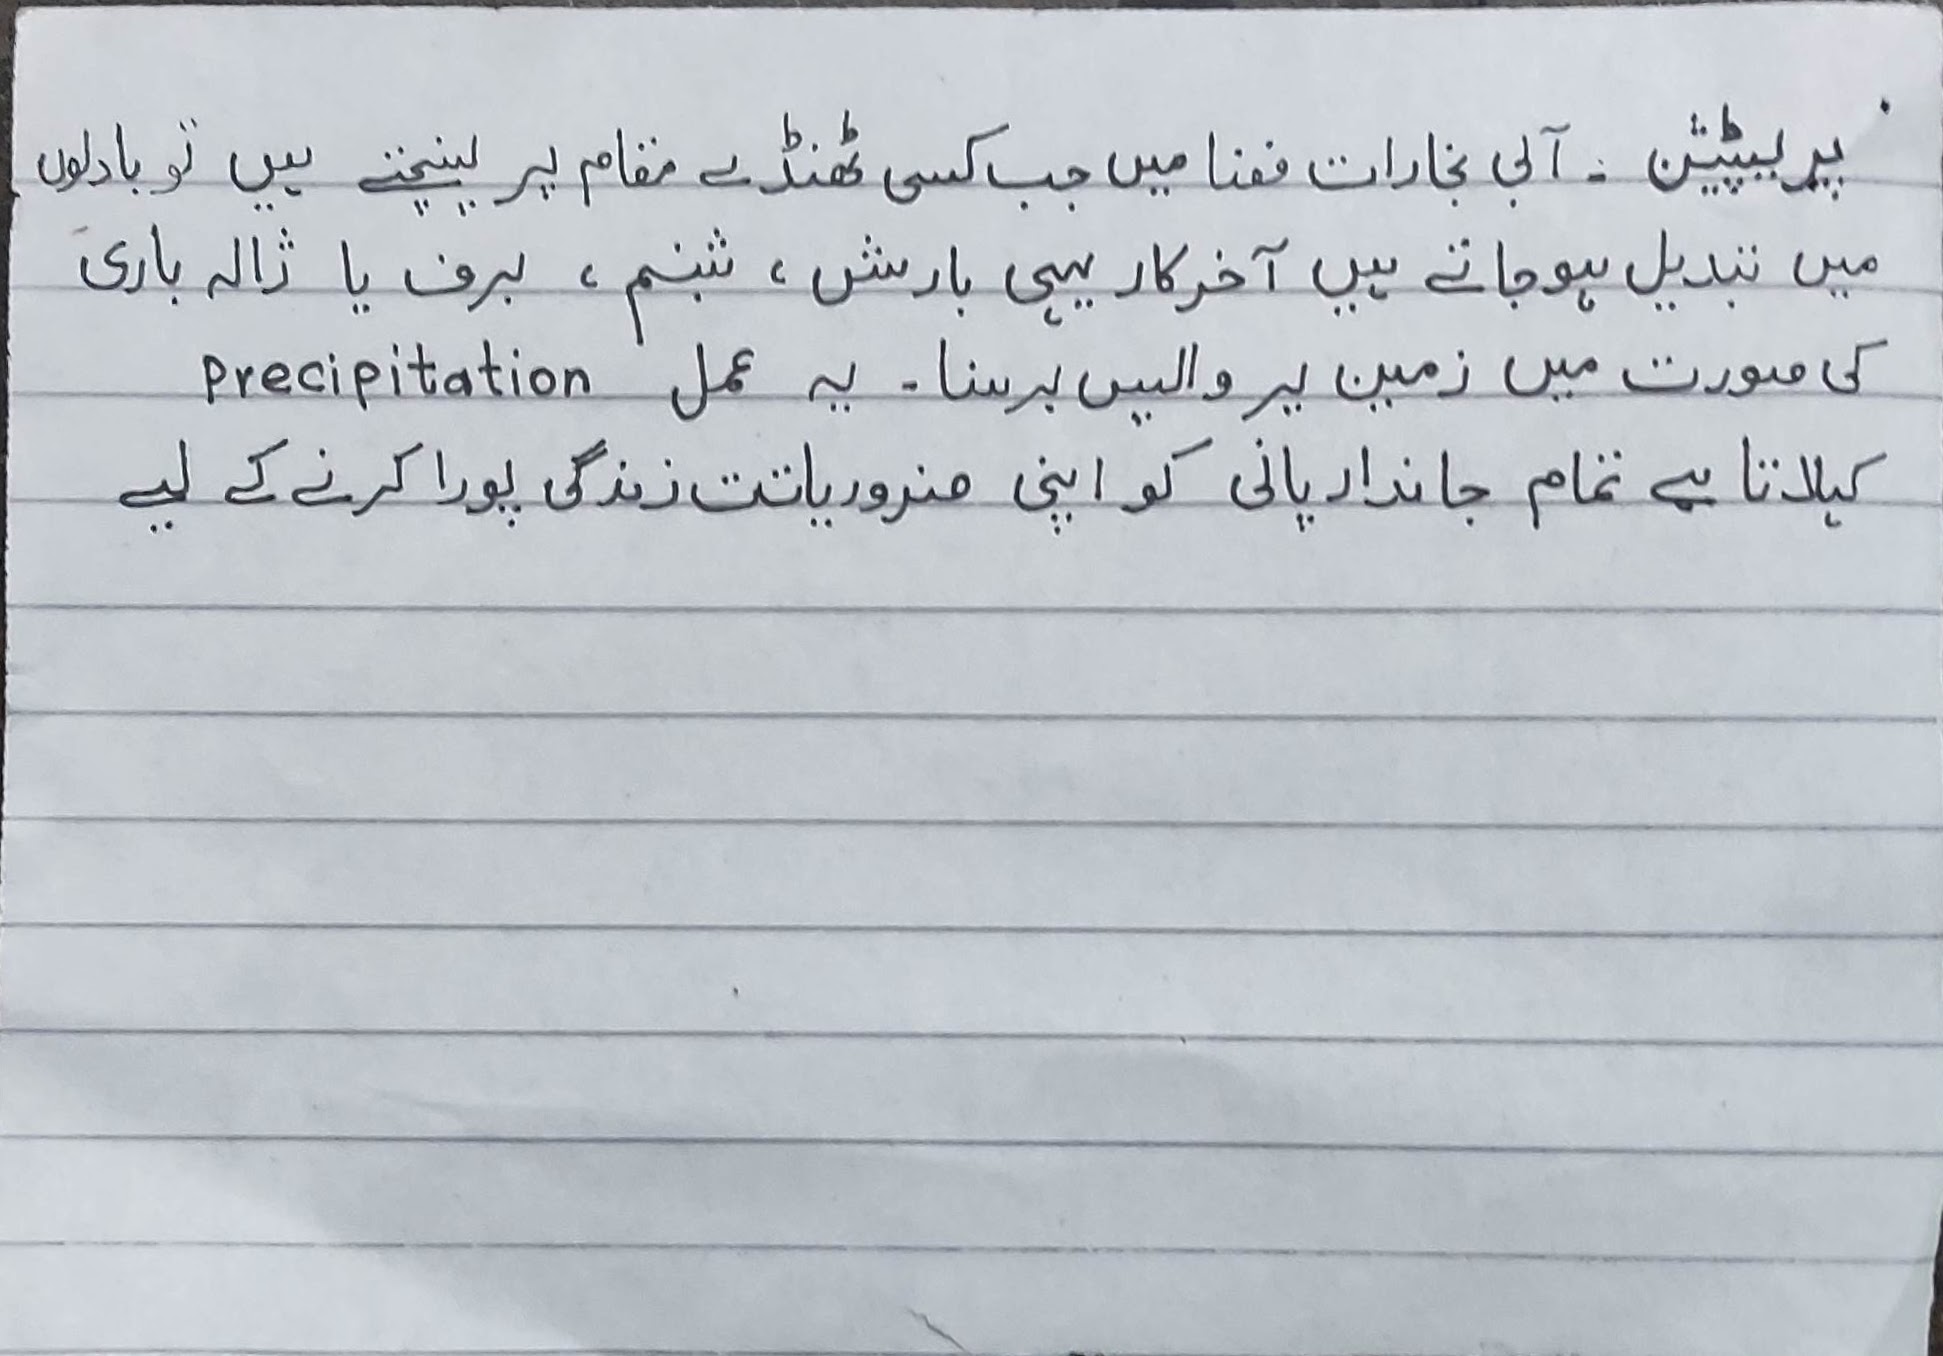 پریپٹیشن :۔ آبی بخارات فضا میں جب کسی ٹھنڈے مقام پر پہنچتے ہیں تو بادلوں
میں تبدیل ہوجاتے ہیں آخرکار یہی بارش ، شبنم ، برف یا ژالہ باری
کی صورت میں زمین پر واپس برسنا ۔ یہ عمل Precipitation
کہلاتا ہے تمام جاندار پانی کو اپنی ضروریات زندگی پورا کرنے کے لیے